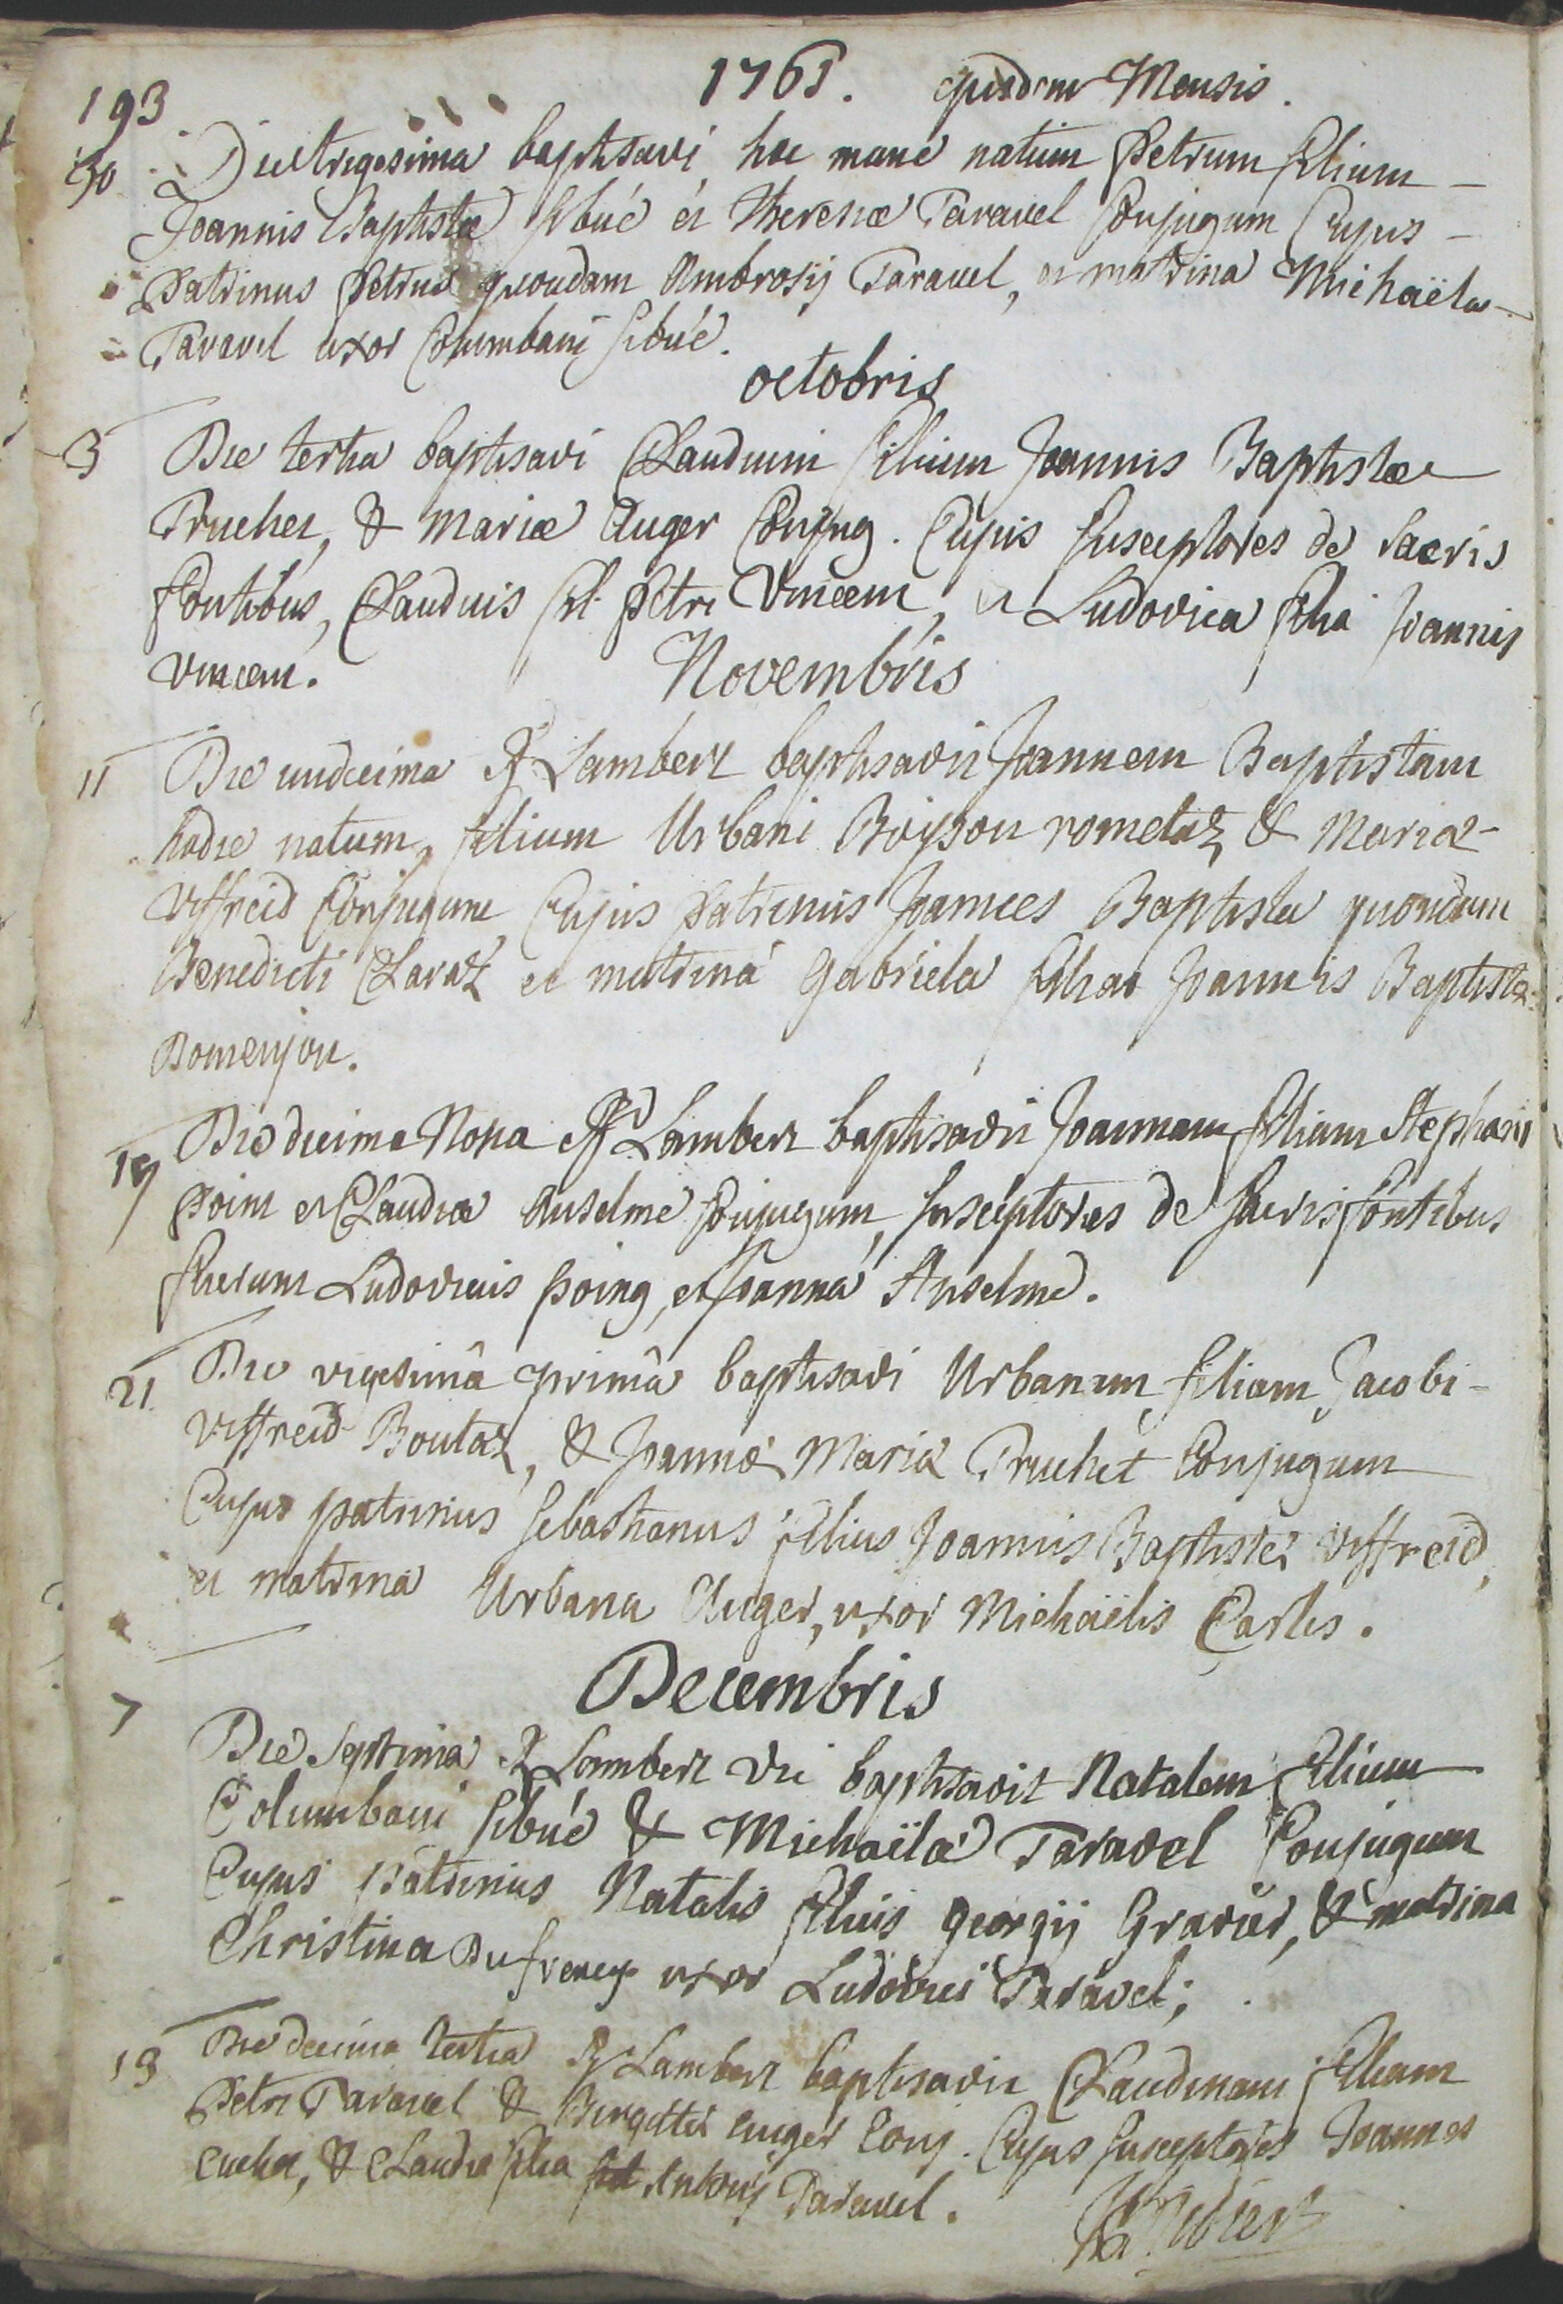 193
1761. ejusdem Mensis.
30 Die trigesima baptisavi hoc mane natum Petrum filium
Joannis Baptistæ Sibué et Theresiæ Taravel Conjugum Cujus
Patrinus Petrus quondam Ambrosij Taravel, et matrina Michaëla
Taravel uxor Columbani Sibué.
octobris
3 Die tertia baptisavi Claudium filium Joannis Baptistæ
Truchet, & Mariæ Auger Conjug. Cujus Susceptores de Sacris
fontibus, Claudius fil. Petri Vincent, et Ludovica filia Joannis
Vincent.
Novembris
11 Die undecima Rd Lambert baptisavit Joannem Baptistam
hodie natum, filium Urbani Boisson rometaz & Mariæ
Viffreid Conjugum Cujus Patrinus Joannes Baptista quondam
Benedicti Claraz et matrina Gabriela filia Joannis Baptistæ
Domenjon.
19 Die decima Nona Rd Lambert baptisavit Joannam filiam Stephani
Point et Claudiæ Anselme Conjugum, Susceptores de Sacris fontibus
fuerunt Ludovicus Poing, et Joanna Anselme.
21 Die vigesimâ primâ baptisavi Urbanam filiam Jacobi
Viffreid Boutaz, & Joannæ Mariæ Truchet Conjugum
Cujus patrinus Sebastianus filius Joannis Baptistæ Viffreid,
et matrina Urbana Auger, uxor Michaëlis Carles.
Decembris
7 Die Septima Rd Lambert Vic baptisavit Natalem filium
Columbani Sibué & Michaëlæ Taravel Conjugum
Cujus patrinus Natalis filius georgij Gravier, & matrina
Christina Dufreney uxor Ludovici Taravel;
13 Die decima tertia Rd Lambert baptisavit Claudinam filiam
Petri Taravel & Birgittæ auger Conj. Cujus Susceptores Joannes
& Claudia filia Antonij Taravel.